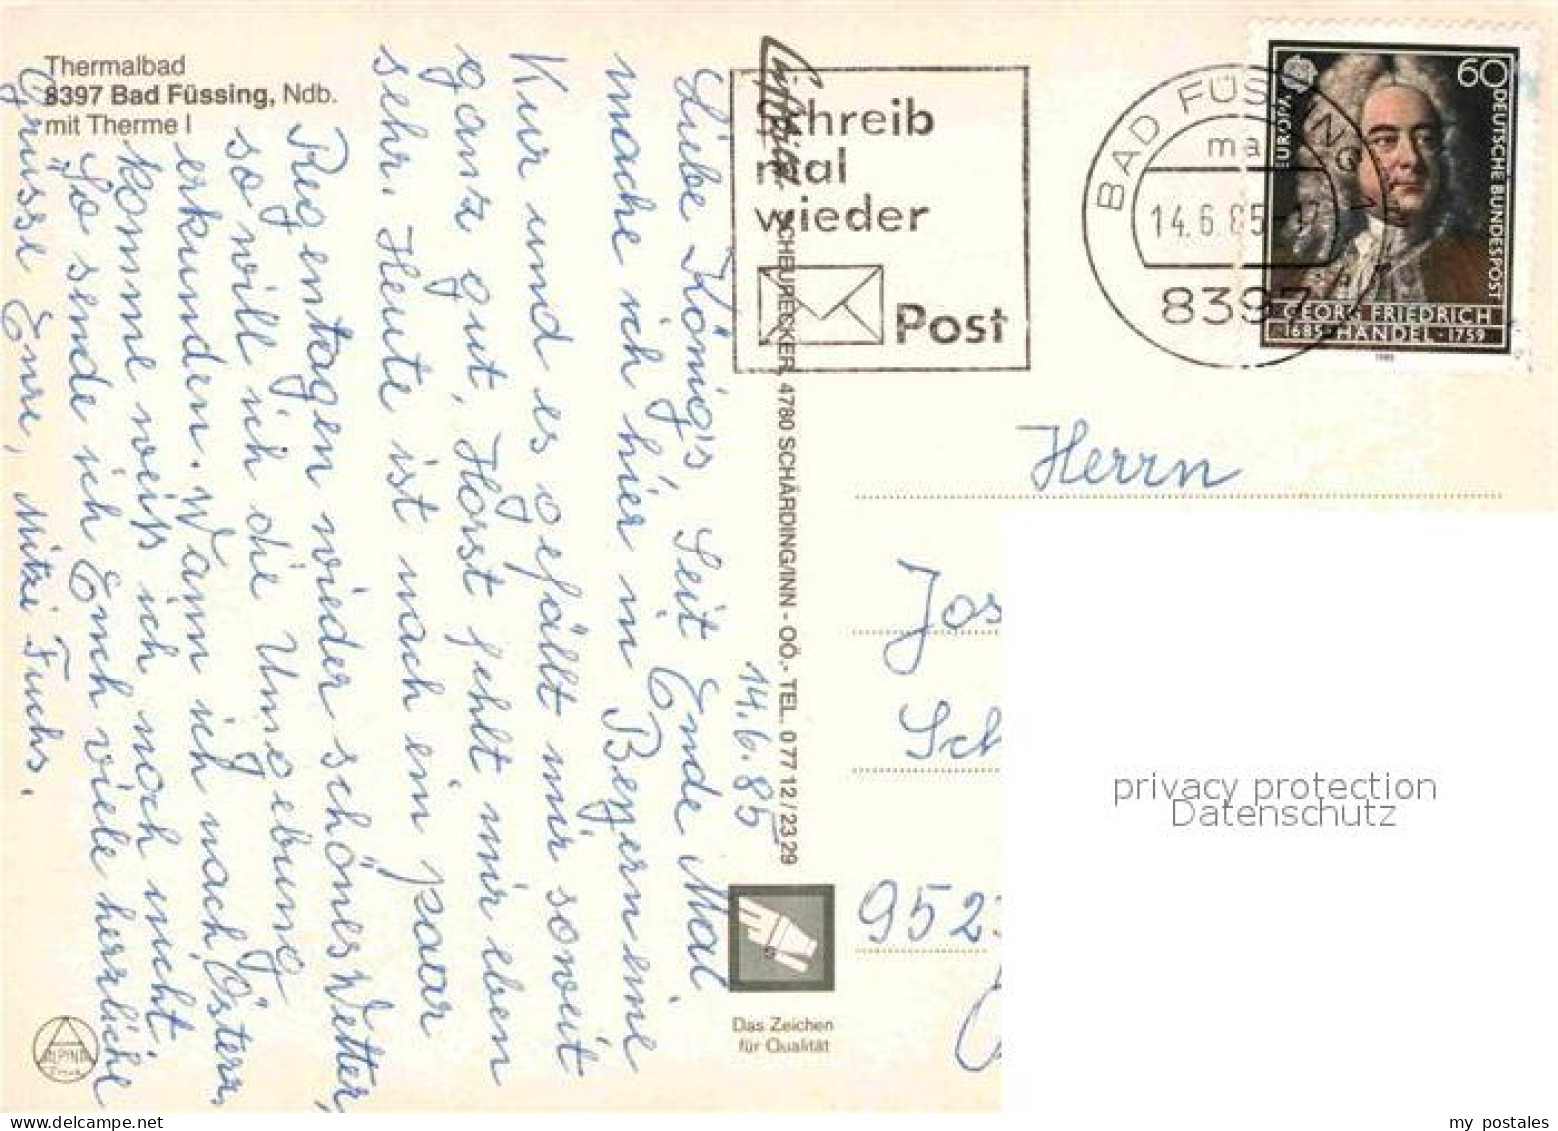 Thermalbad
8397 Bad Füssing, Ndb.
mit Therme I
14.6.85
Liebe König's, Seit Ende Mai
mache ich hier in Bayern eine
Kur und es gefällt mir soweit
ganz gut, Horst fehlt mir eben
sehr. Heute ist nach ein paar
Regentagen wieder schönes Wetter,
so will ich die Umgebung
erkunden. Wann ich nach Österr.
komme weiß ich noch nicht.
So sende ich Euch viele herzliche
Grüsse Eure, Mitzi Fuchs.
SCHEURECKER, 4780 SCHÄRDING/INN - OÖ.- TEL. 0 77 12 / 23 29
Das Zeichen
für Qualität
ALPINA
Schreib
mal
wieder
Post
BAD FÜSSING 1
14.6.85-17
8397
EUROPA
60
DEUTSCHE BUNDESPOST
GEORG FRIEDRICH
1685 · HÄNDEL · 1759
1985
Herrn
Jos
Sch
952
privacy protection
Datenschutz
my postales